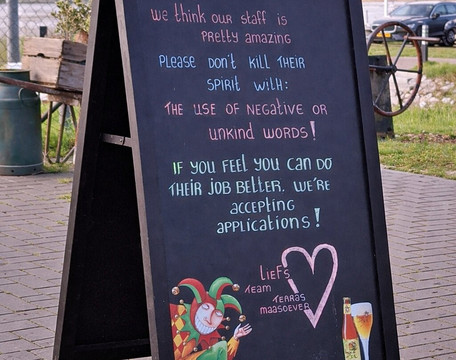 We think our staff is
pretty amazing
Please don't kill their
spirit with:
the use of negative or
unkind words!
If you feel you can do
their job better, we're
accepting
applications!
Liefs
team
terras
maasoever